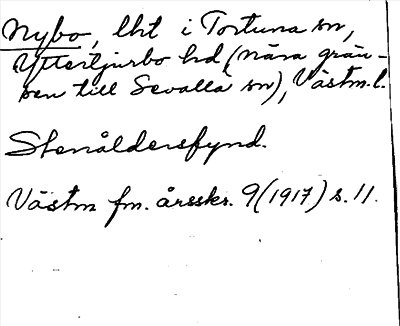 Nybo, lht i Tortuna sn,
Yttertjurbo hd (nära grän-
sen till Sevalla sn), Västm.l.
Stenåldersfynd.
Västm fm. årsskr. 9(1917) s. 11.